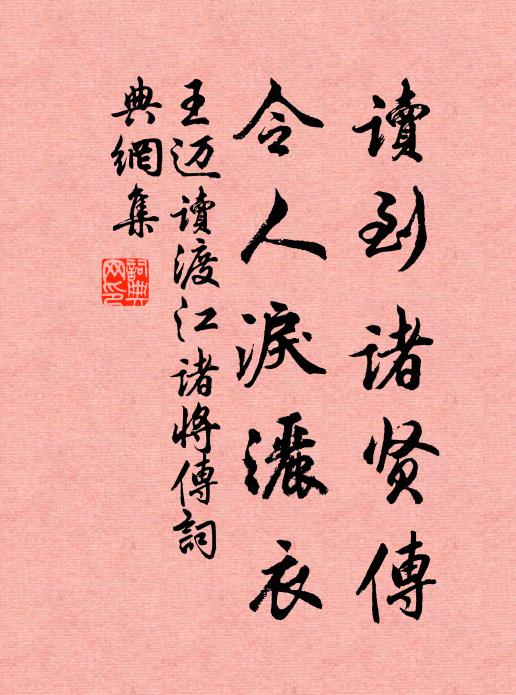 讀到諸贤傳
令人淚灑衣
王迈讀渡江諸將傳詞
典網集
詞典網印